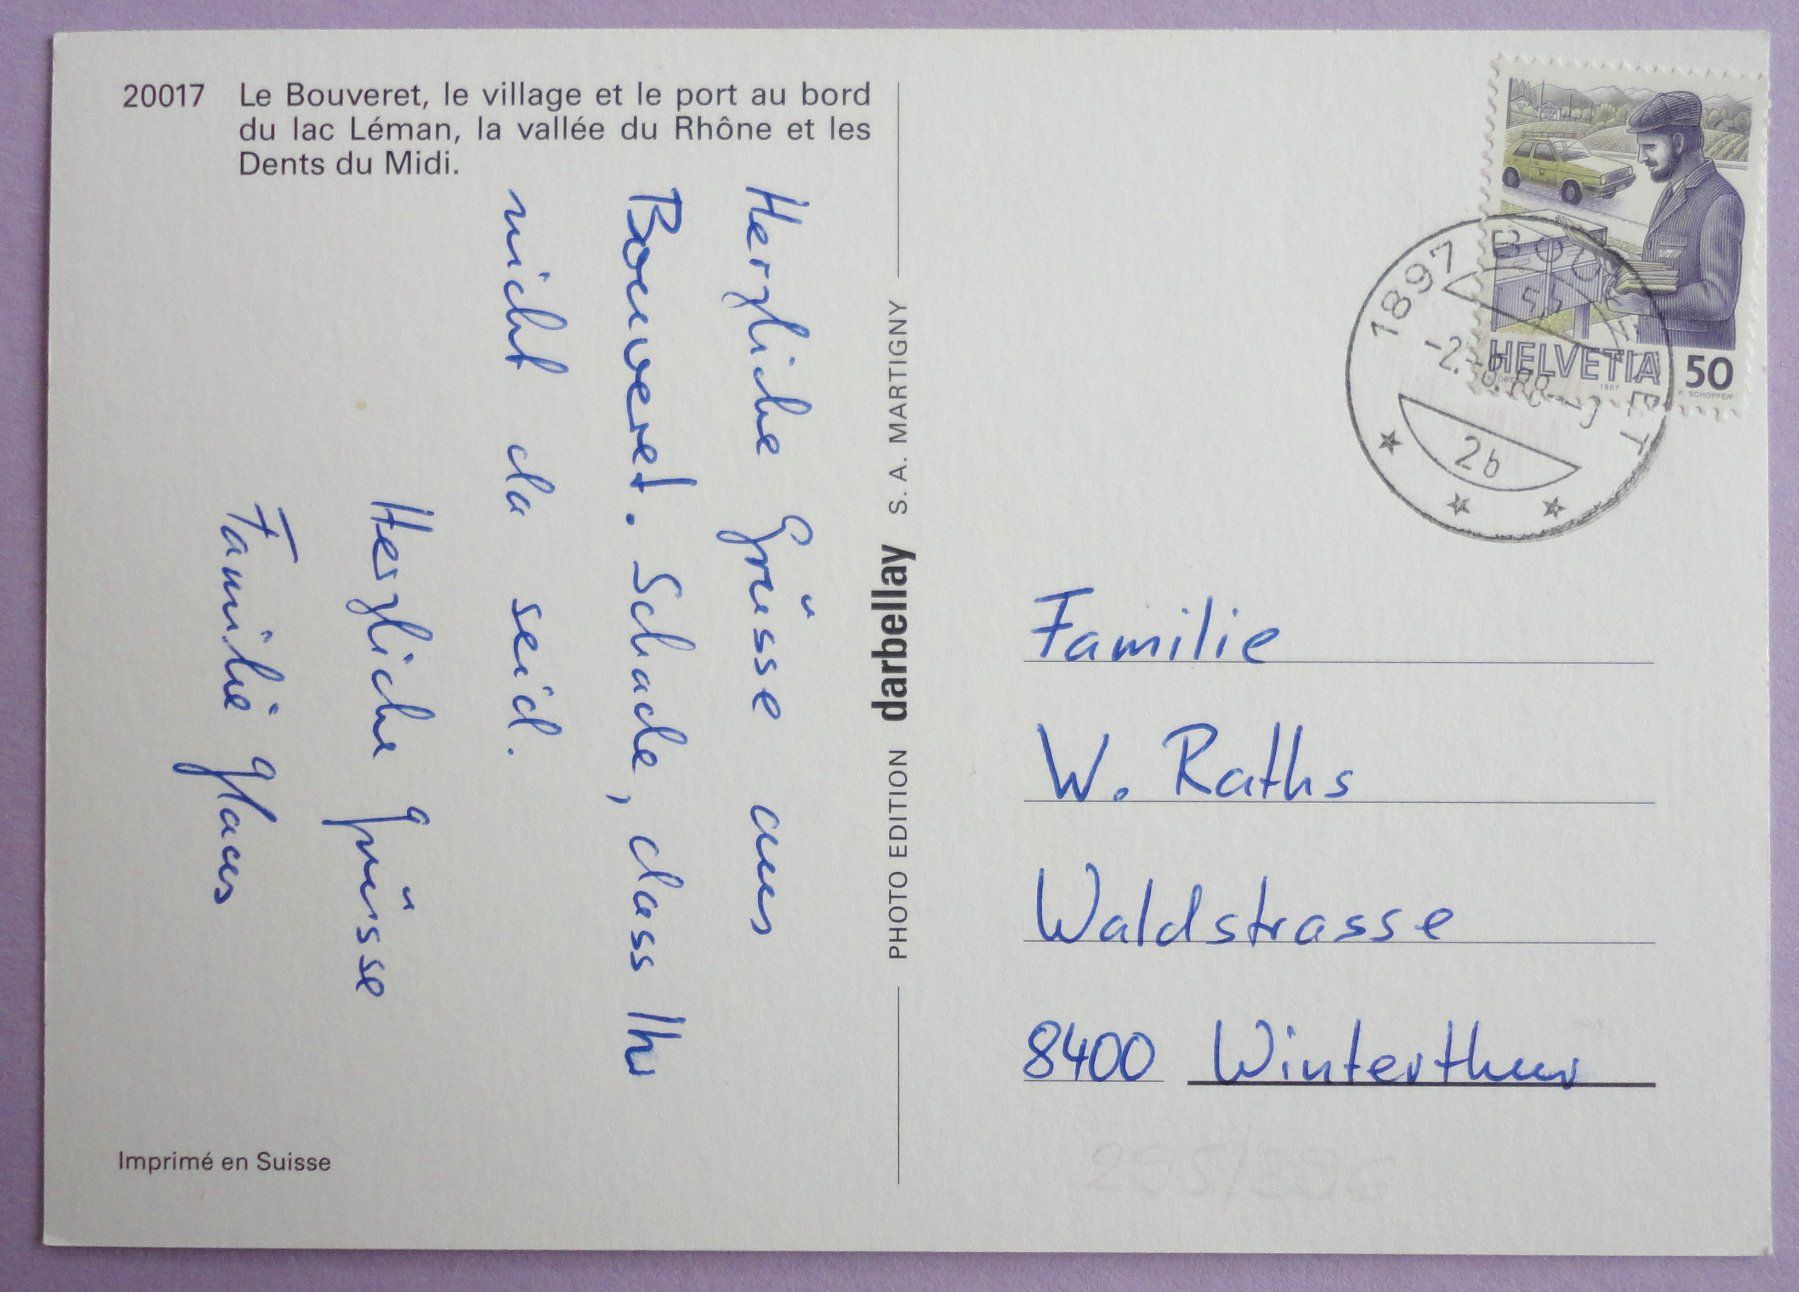 20017 Le Bouveret, le village et le port au bord
du lac Léman, la vallée du Rhône et les
Dents du Midi.
Herzliche Grüsse aus
Bouveret. Schade, dass Ihr
nicht da seid.
Herzliche Grüsse
Familie Glaus
Imprimé en Suisse
PHOTO EDITION darbellay S. A. MARTIGNY
HELVETIA 50
1987
P. SCHOPFER
1897 BOUVERET
2b
Familie
W. Raths
Waldstrasse
8400 Winterthur